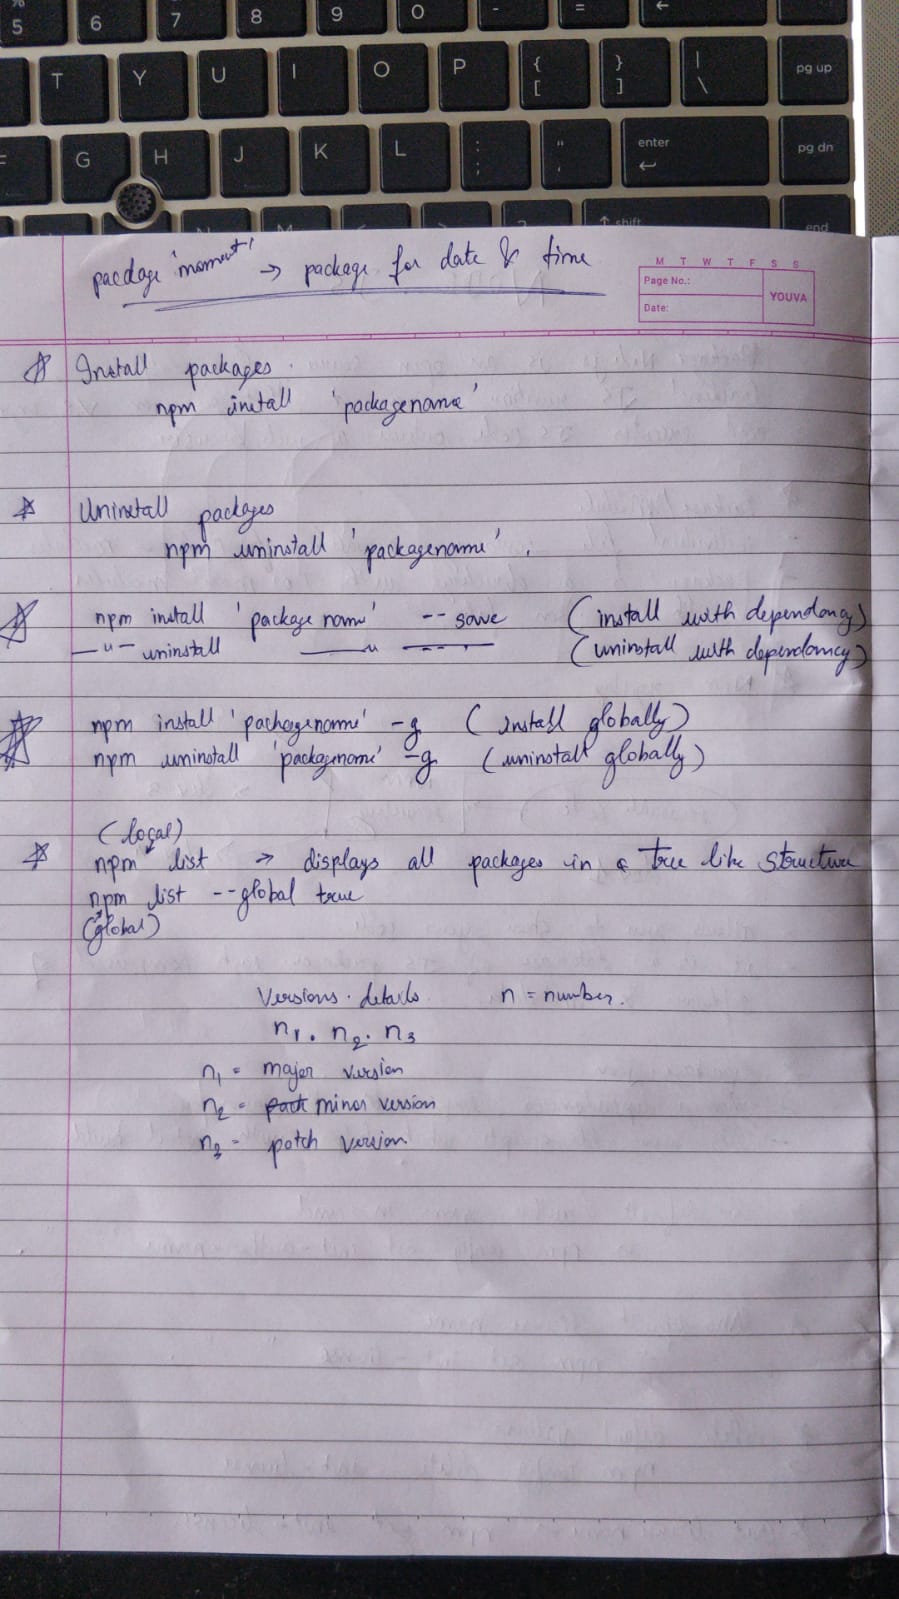 % 5 6 7 8 9 0 - = ←
T Y U I O P { [ } ] | \ pg up
F G H J K L : ; " ' enter ↵ pg dn
N M < > ? ↑ shift end
pacdage 'moment' → package for date & time
M T W T F S S
Page No.:
Date:
YOUVA
Install packages.
npm install 'packagename'
Uninstall packages
npm uninstall 'packagename'.
npm install 'package name' -- save (install with dependancy)
—〃— uninstall —〃 —-- (uninstall with dependancy)
npm install 'packagename' -g (install globally)
npm uninstall 'packagename' -g (uninstall globally)
(local)
npm list → displays all packages in a tree like structure
npm list --global true
(global)
Versions. details n = number.
n1. n2. n3
n1 = major version
n2 = minor version
n3 = patch version